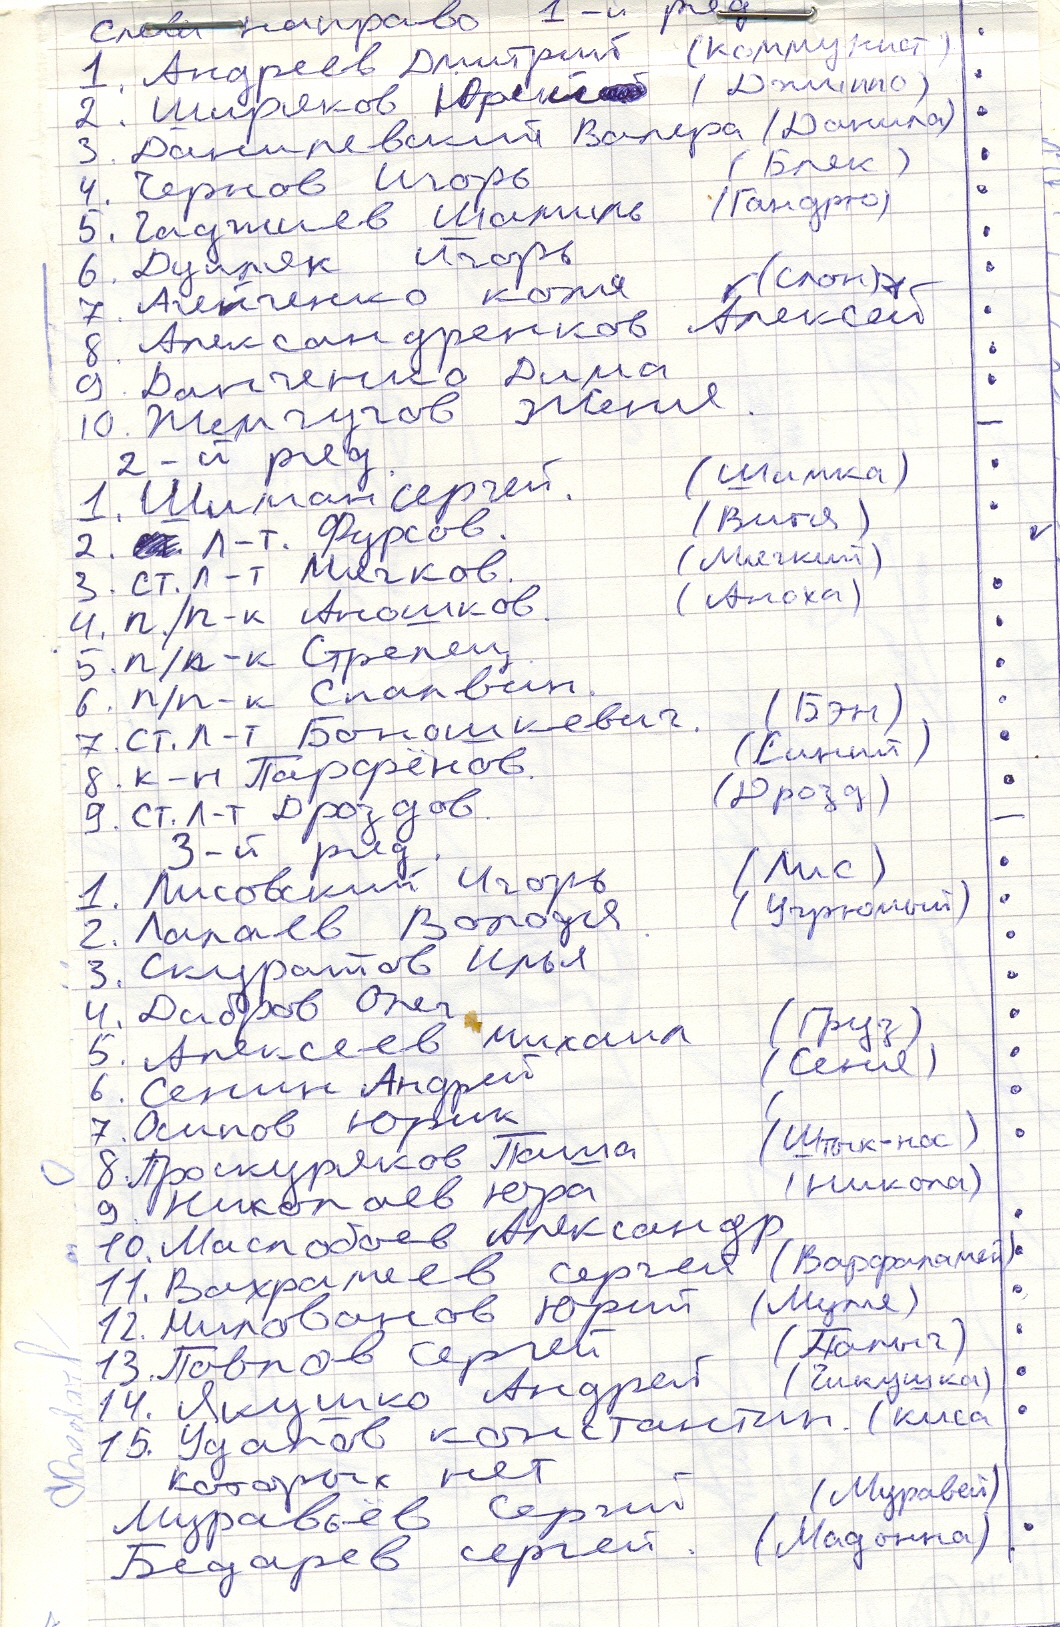 Слева направо 1-й ряд.
1. Андреев Дмитрий (Коммунист)
2. Ширяков Юрий (Джиппо)
3. Данилевский Валера (Данила)
4. Чернов Игорь (Блек)
5. Гаджиев Шамиль (Гандрю)
6. Дупляк Игорь
7. Агейченко Коля (Слон)
8. Александренков Алексей
9. Данченко Дима
10. Жемчугов Женя.
2-й ряд.
1. Шиман Сергей. (Шимка)
2. л-т. Фурсов. (Витя)
3. ст.л-т Мягков. (Мягкий)
4. п/п-к Аношков. (Аноха)
5. п/п-к Стрелец
6. п/п-к Спалвин.
7. ст.л-т Бонашкевич. (Бэн)
8. к-н Парфёнов. (Синий)
9. ст.л-т Дроздов. (Дрозд)
3-й ряд.
1. Лисовский Игорь (Лис)
2. Лапаев Володя. (Угрюмый)
3. Скуратов Илья
4. Дабров Олег
5. Алексеев Михаил (Груз)
6. Сенин Андрей (Сеня)
7. Осипов Юрик (
8. Проскуряков Паша (Штык-нос)
9. Николаев Юра (Никола)
10. Маслобоев Александр
11. Вахрамеев Сергей (Варфаламей)
12. Милованов Юрий (Муля)
13. Павлов Сергей (Палыч)
14. Якушко Андрей (Чикушка)
15. Удалов Константин. (Киса
которых нет
Муравьёв Сергей (Муравей)
Бедарев Сергей. (Мадонна)